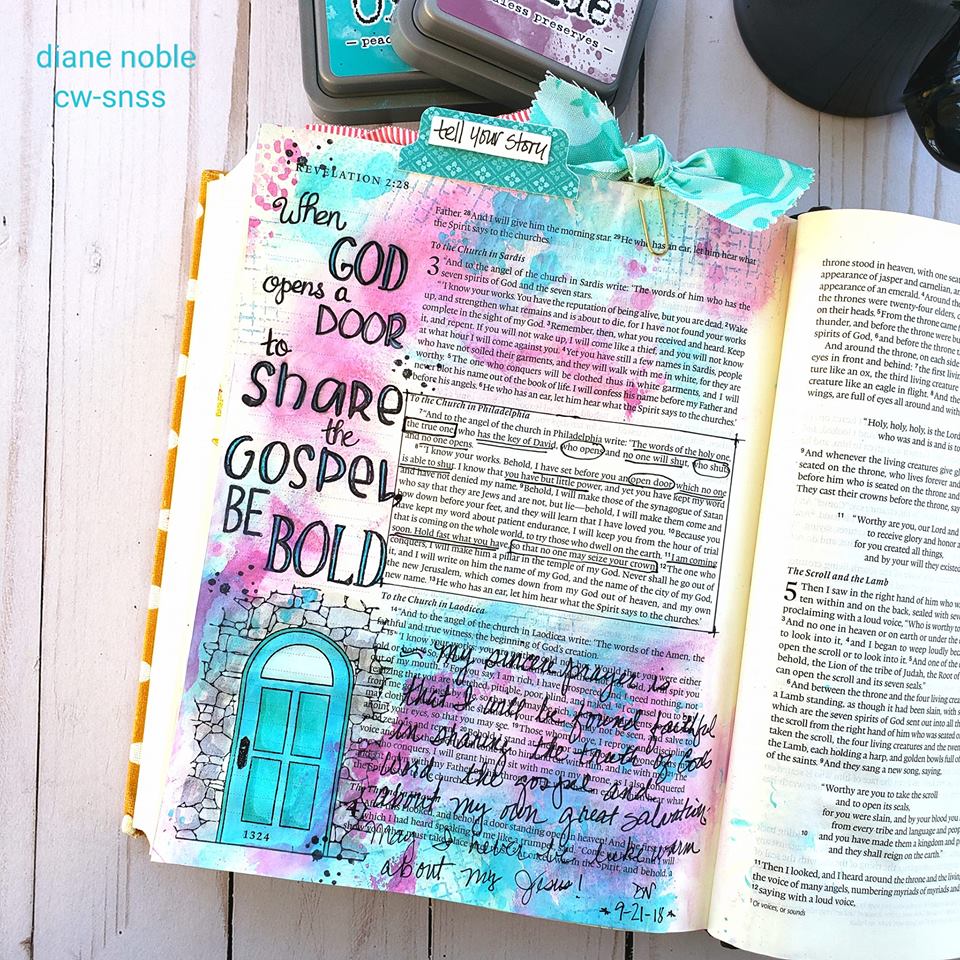 diane noble
cw-snss
- peac
- less preserves -
tell your story
REVELATION 2:28
When
GOD
opens a
DOOR
to
share
the
GOSPEL,
BE
BOLD
1324
Father. 28 And I will give him the morning star. 29 He who has an ear, let him hear what
the Spirit says to the churches.'
To the Church in Sardis
3 "And to the angel of the church in Sardis write: 'The words of him who has the
seven spirits of God and the seven stars.
"'I know your works. You have the reputation of being alive, but you are dead. 2 Wake
up, and strengthen what remains and is about to die, for I have not found your works
complete in the sight of my God. 3 Remember, then, what you received and heard. Keep
it, and repent. If you will not wake up, I will come like a thief, and you will not know
at what hour I will come against you. 4 Yet you have still a few names in Sardis, people
who have not soiled their garments, and they will walk with me in white, for they are
worthy. 5 The one who conquers will be clothed thus in white garments, and I will
never blot his name out of the book of life. I will confess his name before my Father and
before his angels. 6 He who has an ear, let him hear what the Spirit says to the churches.'
To the Church in Philadelphia
7 "And to the angel of the church in Philadelphia write: 'The words of the holy one,
the true one, who has the key of David, who opens and no one will shut, who shuts
and no one opens.
8 "'I know your works. Behold, I have set before you an open door, which no one
is able to shut. I know that you have but little power, and yet you have kept my word
and have not denied my name. 9 Behold, I will make those of the synagogue of Satan
who say that they are Jews and are not, but lie—behold, I will make them come and
bow down before your feet, and they will learn that I have loved you. 10 Because you
have kept my word about patient endurance, I will keep you from the hour of trial
that is coming on the whole world, to try those who dwell on the earth. 11 I am coming
soon. Hold fast what you have, so that no one may seize your crown. 12 The one who
conquers, I will make him a pillar in the temple of my God. Never shall he go out of
it, and I will write on him the name of my God, and the name of the city of my God,
the new Jerusalem, which comes down from my God out of heaven, and my own
new name. 13 He who has an ear, let him hear what the Spirit says to the churches.'
To the Church in Laodicea
14 "And to the angel of the church in Laodicea write: 'The words of the Amen, the
faithful and true witness, the beginning of God's creation.
my sincere prayer is
that I will be found faithful
in sharing the truth of God's
word the gospel and
about my own great salvation
may I never be lukewarm
about my Jesus!
DN
*9-21-18*
throne stood in heaven, with one sea
appearance of jasper and carnelian, a
appearance of an emerald. 4 Around th
the thrones were twenty-four elders, c
on their heads. 5 From the throne came f
thunder, and before the throne were bu
spirits of God, 6 and before the throne t
And around the throne, on each side
eyes in front and behind: 7 the first livin
ture like an ox, the third living creature
creature like an eagle in flight. 8 And the
wings, are full of eyes all around and with
"Holy, holy, holy, is the Lord
who was and is and is to
9 And whenever the living creatures give gl
seated on the throne, who lives forever and
before him who is seated on the throne and
They cast their crowns before the throne, say
11 "Worthy are you, our Lord and
to receive glory and honor a
for you created all things,
and by your will they existed
The Scroll and the Lamb
5 Then I saw in the right hand of him who w
ten within and on the back, sealed with seve
proclaiming with a loud voice, "Who is worthy to
3 And no one in heaven or on earth or under the
to look into it, 4 and I began to weep loudly beca
open the scroll or to look into it. 5 And one of the
behold, the Lion of the tribe of Judah, the Root of
can open the scroll and its seven seals."
6 And between the throne and the four living crea
a Lamb standing, as though it had been slain, with s
which are the seven spirits of God sent out into all th
the scroll from the right hand of him who was seated o
the scroll, the four living creatures and the twen
the Lamb, each holding a harp, and golden bowls full of
of the saints. 9 And they sang a new song, saying,
"Worthy are you to take the scroll
and to open its seals,
for you were slain, and by your blood you
from every tribe and language and peop
10 and you have made them a kingdom and p
and they shall reign on the earth."
11 Then I looked, and I heard around the throne and the livin
the voice of many angels, numbering myriads of myriads and
12 saying with a loud voice,
Or voices, or sounds